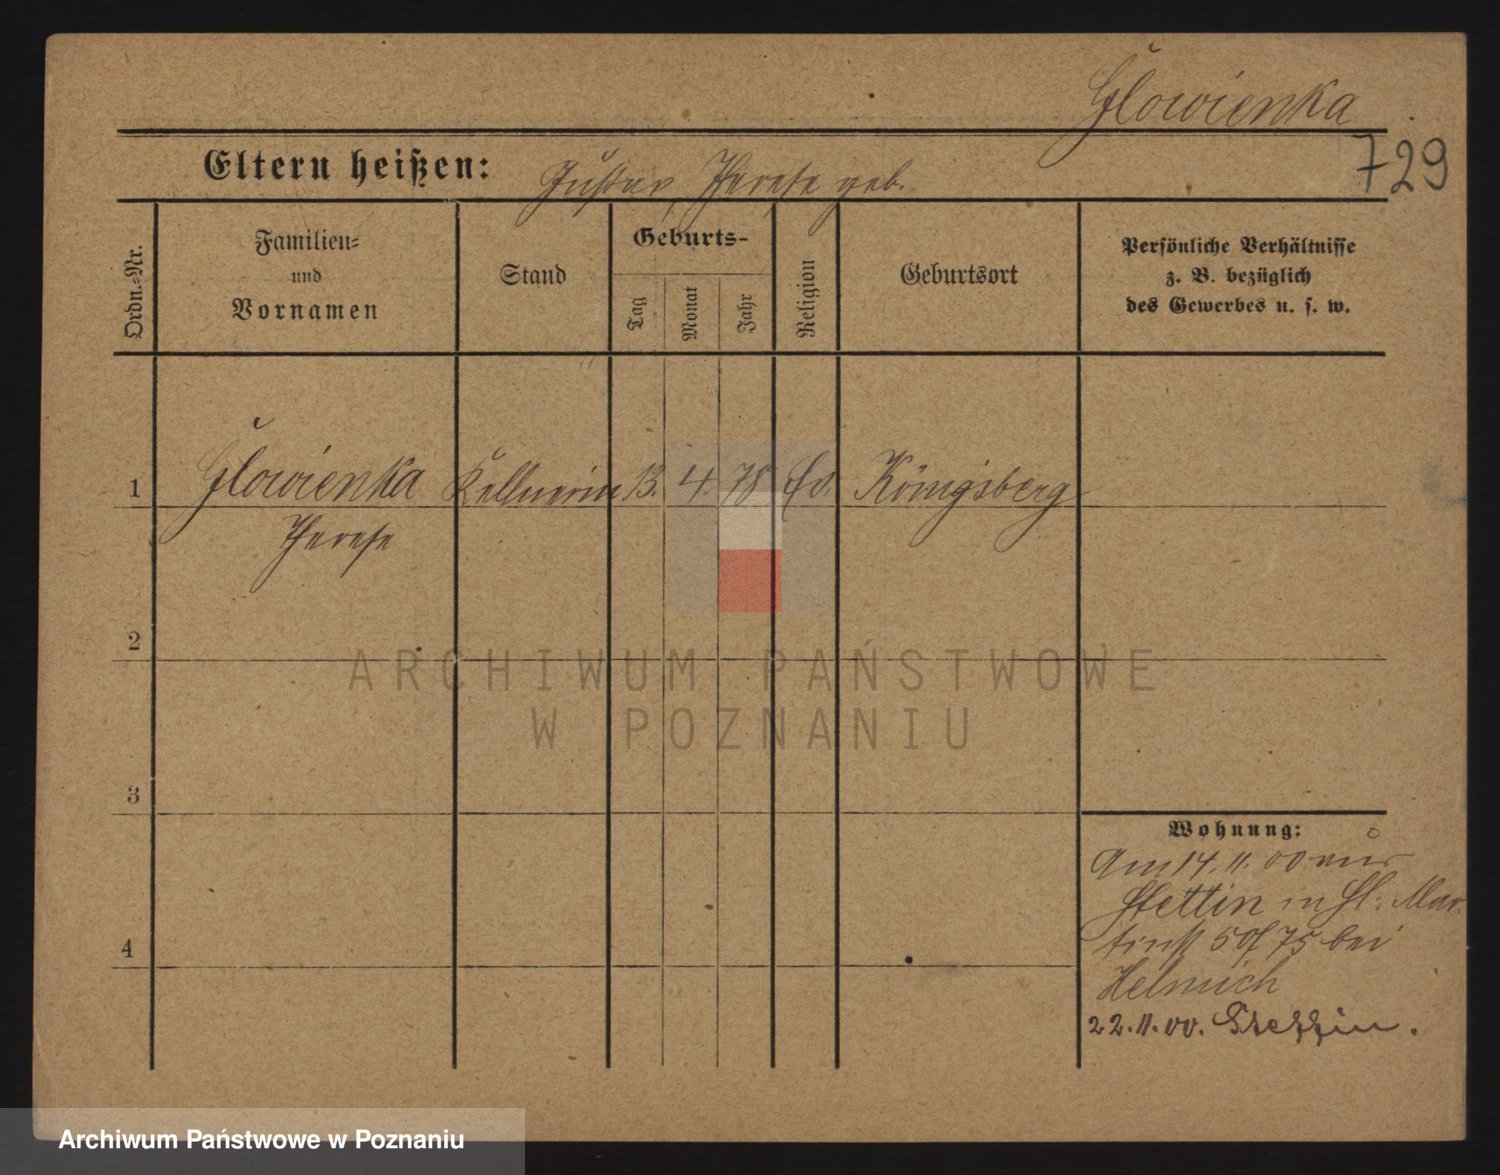 Glowienka
729
Eltern heißen: Gustav, Therese geb.
Ordn.-Nr.
Familien-
und
Vornamen
Stand
Geburts-
Tag
Monat
Jahr
Religion
Geburtsort
Persönliche Verhältnisse
z. B. bezüglich
des Gewerbes u. s. w.
1 Glowienka Kellnerin 13. 4. 78 Ev. Königsberg
Therese
2
3
4
Wohnung:
Am 14.11.00 aus
Stettin in St. Mar-
tinst 50/75 bei
Helmich
22.11.00. Stettin.
ARCHIWUM PAŃSTWOWE
W POZNANIU
Archiwum Państwowe w Poznaniu